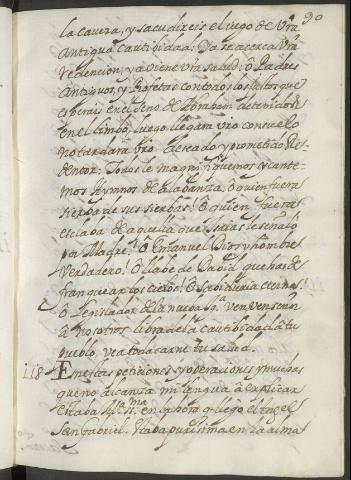 90
la caveza, y sacudireis el iugo de Vrª
Antigua Cautibidad: Ya se acerca Vrª
redencion, ya viene vrª salud: ô Padres
Antiguos, y Profetas con todos los Justos que
esperais en el seno de Abraham detenidos
en el limbo, luego llegara vrô consuelo
no tardara vrô deseado y prometido Re-
dentor: Todos le magnifiquemos y cante-
mos Hymnos de alabanza, ô quien fuera
sierba de sus sierbas! ô quien fuera
esclaba de aquella que Isaias le señaló
por Madre! ô Emanuel Dios y hombre
Verdadero! ô llabe de David que has de
franquear los cielos! ô Sapiduria eterna!
ô Legislador de la nueba Igª ven ven señor
â nosotros libra de la cautibidad â tu
pueblo, vea toda carne tu salud.
118 En estas peticiones y operaciones y muchas
que no alcanza mi lengua â explicar
estaba Mª SSma. en la hora q llegô el Angel
San Gabriel. Estaba purissima en la alma